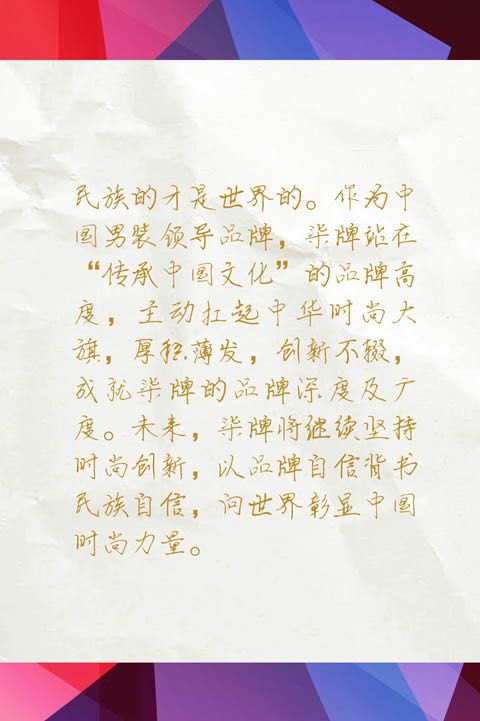 民族的才是世界的。作为中
国男装领导品牌，柒牌站在
“传承中国文化”的品牌高
度，主动扛起中华时尚大
旗，厚积薄发，创新不辍，
成就柒牌的品牌深度及广
度。未来，柒牌将继续坚持
时尚创新，以品牌自信背书
民族自信，向世界彰显中国
时尚力量。